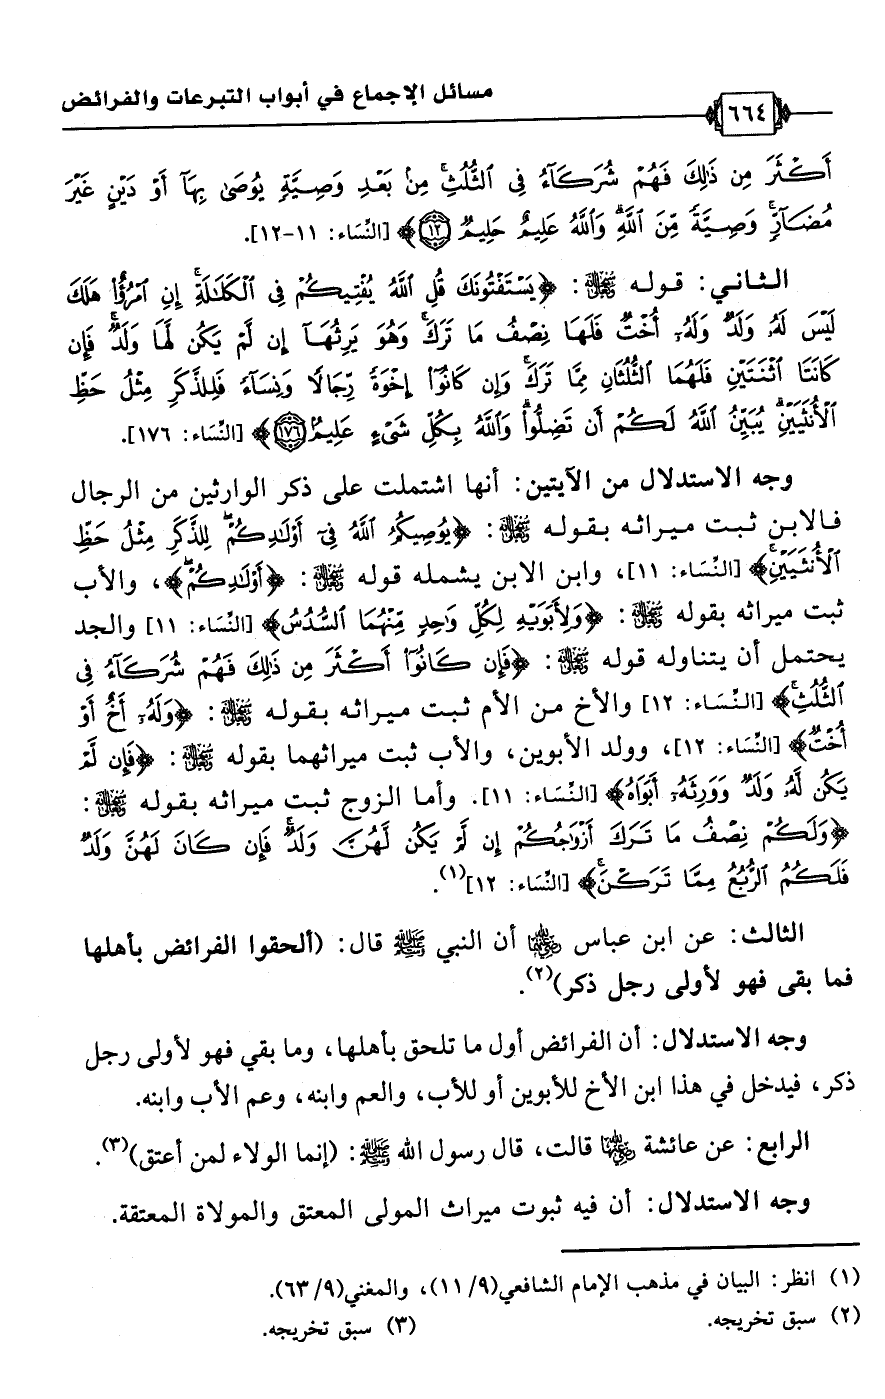 مسائل الإجماع في أبواب التبرعات والفرائض
٦٦٤
أَكْثَرَ مِن ذَٰلِكَ فَهُمْ شُرَكَآءُ فِى ٱلثُّلُثِ ۚ مِنۢ بَعْدِ وَصِيَّةٍ يُوصَىٰ بِهَآ أَوْ دَيْنٍ غَيْرَ
مُضَآرٍّ ۚ وَصِيَّةً مِّنَ ٱللَّهِ ۗ وَٱللَّهُ عَلِيمٌ حَلِيمٌ ۝١٢﴾ [النِّسَاء: ١١-١٢].
الثاني: قوله ﷻ: ﴿يَسْتَفْتُونَكَ قُلِ ٱللَّهُ يُفْتِيكُمْ فِى ٱلْكَلَٰلَةِ ۚ إِنِ ٱمْرُؤٌا۟ هَلَكَ
لَيْسَ لَهُۥ وَلَدٌ وَلَهُۥٓ أُخْتٌ فَلَهَا نِصْفُ مَا تَرَكَ ۚ وَهُوَ يَرِثُهَآ إِن لَّمْ يَكُن لَّهَا وَلَدٌ ۚ فَإِن
كَانَتَا ٱثْنَتَيْنِ فَلَهُمَا ٱلثُّلُثَانِ مِمَّا تَرَكَ ۚ وَإِن كَانُوٓا۟ إِخْوَةً رِّجَالًا وَنِسَآءً فَلِلذَّكَرِ مِثْلُ حَظِّ
ٱلْأُنثَيَيْنِ ۗ يُبَيِّنُ ٱللَّهُ لَكُمْ أَن تَضِلُّوا۟ ۗ وَٱللَّهُ بِكُلِّ شَىْءٍ عَلِيمٌۢ ۝١٧٦﴾ [النِّسَاء: ١٧٦].
وجه الاستدلال من الآيتين: أنها اشتملت على ذكر الوارثين من الرجال
فالابن ثبت ميراثه بقوله ﷻ: ﴿يُوصِيكُمُ ٱللَّهُ فِىٓ أَوْلَٰدِكُمْ ۖ لِلذَّكَرِ مِثْلُ حَظِّ
ٱلْأُنثَيَيْنِ ۚ﴾ [النِّسَاء: ١١]، وابن الابن يشمله قوله ﷻ: ﴿أَوْلَٰدِكُمْ ۖ﴾، والأب
ثبت ميراثه بقوله ﷻ: ﴿وَلِأَبَوَيْهِ لِكُلِّ وَٰحِدٍ مِّنْهُمَا ٱلسُّدُسُ﴾ [النِّسَاء: ١١] والجد
يحتمل أن يتناوله قوله ﷻ: ﴿فَإِن كَانُوٓا۟ أَكْثَرَ مِن ذَٰلِكَ فَهُمْ شُرَكَآءُ فِى
ٱلثُّلُثِ ۚ﴾ [النِّسَاء: ١٢] والأخ من الأم ثبت ميراثه بقوله ﷻ: ﴿وَلَهُۥٓ أَخٌ أَوْ
أُخْتٌ﴾ [النِّسَاء: ١٢]، وولد الأبوين، والأب ثبت ميراثهما بقوله ﷻ: ﴿فَإِن لَّمْ
يَكُن لَّهُۥ وَلَدٌ وَوَرِثَهُۥٓ أَبَوَاهُ﴾ [النِّسَاء: ١١]. وأما الزوج ثبت ميراثه بقوله ﷻ:
﴿وَلَكُمْ نِصْفُ مَا تَرَكَ أَزْوَٰجُكُمْ إِن لَّمْ يَكُن لَّهُنَّ وَلَدٌ ۚ فَإِن كَانَ لَهُنَّ وَلَدٌ
فَلَكُمُ ٱلرُّبُعُ مِمَّا تَرَكْنَ ۚ﴾ [النِّسَاء: ١٢](١).
الثالث: عن ابن عباس رضي الله عنهما أن النبي ﷺ قال: (ألحقوا الفرائض بأهلها
فما بقى فهو لأولى رجل ذكر)(٢).
وجه الاستدلال: أن الفرائض أول ما تلحق بأهلها، وما بقي فهو لأولى رجل
ذكر، فيدخل في هذا ابن الأخ للأبوين أو للأب، والعم وابنه، وعم الأب وابنه.
الرابع: عن عائشة رضي الله عنها قالت، قال رسول الله ﷺ: (إنما الولاء لمن أعتق)(٣).
وجه الاستدلال: أن فيه ثبوت ميراث المولى المعتق والمولاة المعتقة.
(١) انظر: البيان في مذهب الإمام الشافعي(١١/٩)، والمغني(٦٣/٩).
(٢) سبق تخريجه. (٣) سبق تخريجه.